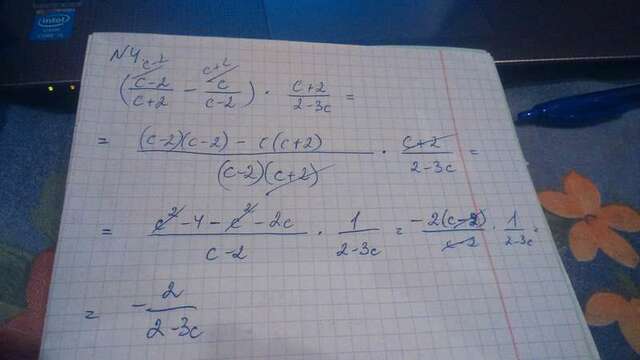 intel
N4
(c-2/c+2 - c/c-2) · c+2/2-3c =
= (c-2)(c-2) - c(c+2)/(c-2)(c+2) · c+2/2-3c =
= c²-4-c²-2c/c-2 · 1/2-3c = -2(c-2)/c-2 · 1/2-3c =
= -2/2-3c